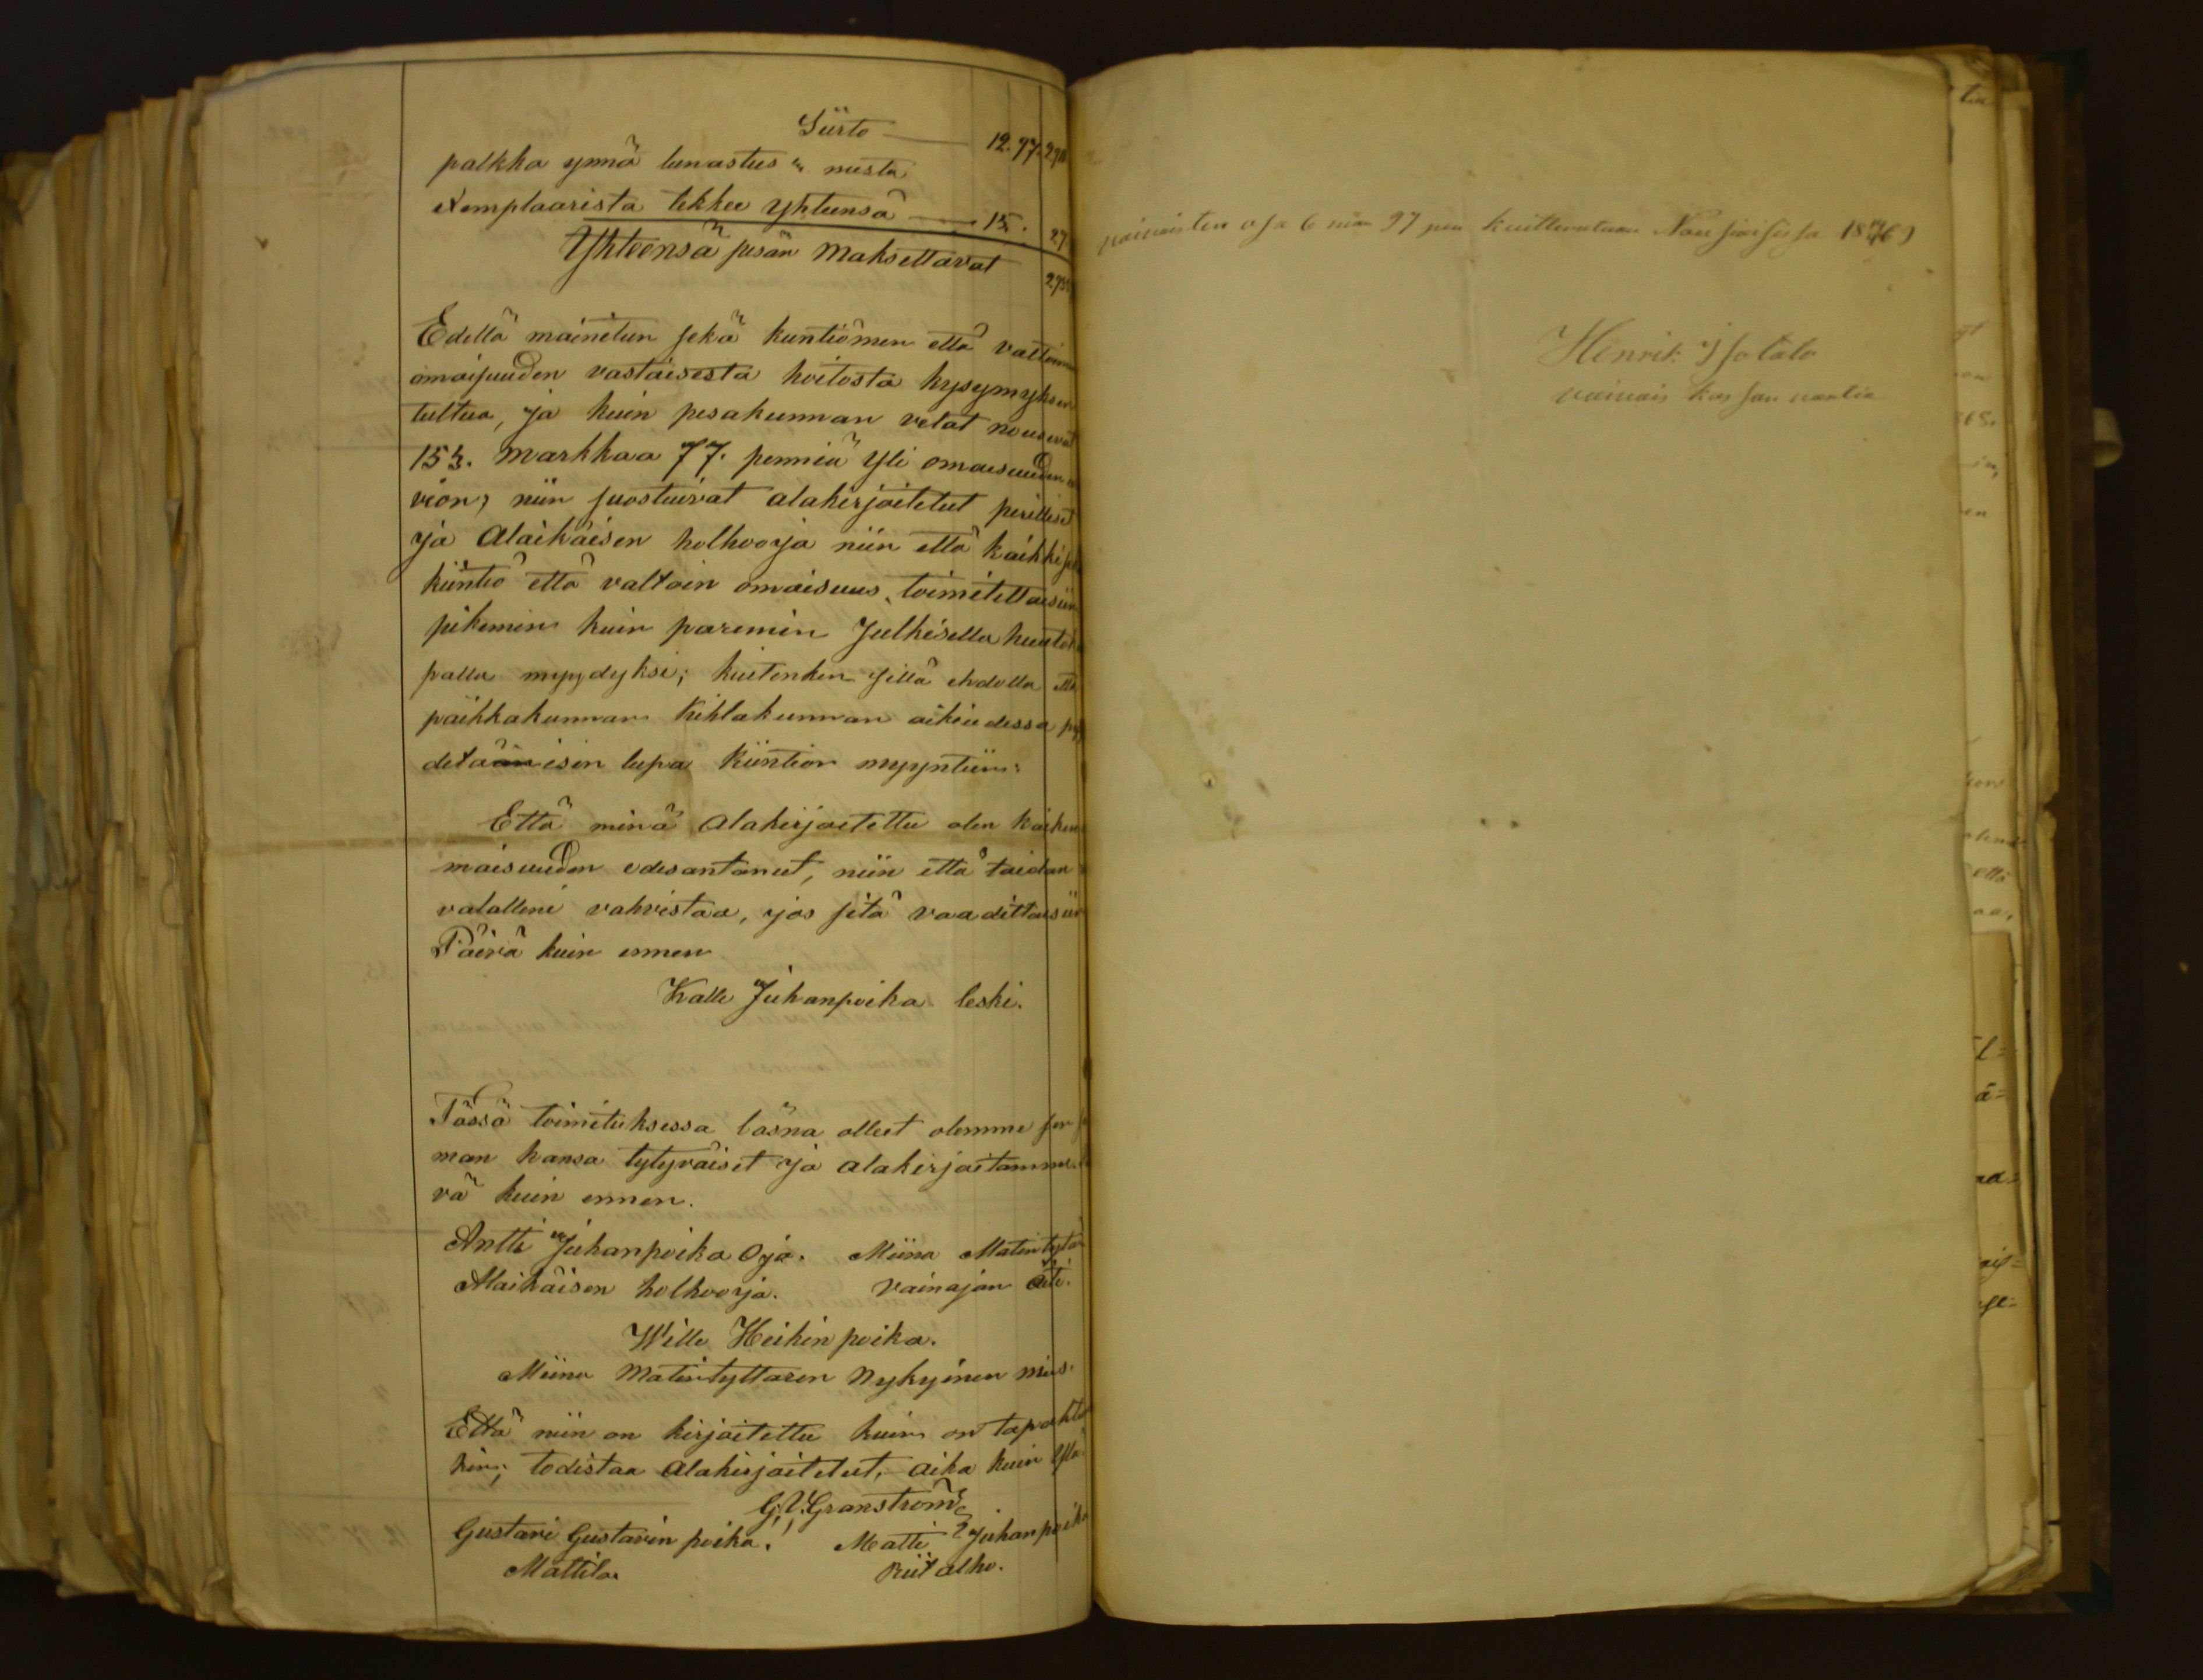 Siirto — 12. 97. 2,911
palkka ynnä lunastus musta
exemplaarista tekkee yhteensä — 15. 27
Yhteensä pesän maksettavat
Edellä mainitun sekä kuntiömen että valtoimen
omaisuuden vastaisesta hoitosta kysymyksen
tultua, ja kuin pesäkunnan velat nousevat
153. markkaa 77. penniä yli omaisuuden
vion, niin suostuivat alakirjoitetut perilliset
ja Alaikäisen holhooja niin että kaikki
kiintiö että valtoin omaisuus toimitettaisiin
pikemin kuin paremin Julkisella huuto
palla myydyksi; kuitenkin sillä ehdolla että
paikkakunnan Kihlakunnan oikeudessa
detäänisin lupa kiintion myyntiin:
Että minä alakirjoitettu olen kaiken
maisuuden edesantanut, niin että taidan
valalleni vahvistaa, jos sitä vaadittaisiin
Päivä kuin ennen
Kalle Juhanpoika leski.
Tässä toimituksessa läsnä olleet olemme
man kansa tytyväiset ja alakirjoitamme.
vä kuin ennen.
Antti Juhanpoika Oja. Miina Matintytär
Alaikäisen holhooja. Vainajan äiti.
Wille Heikin poika.
Miina Matintyttären Nykyinen mies.
Että niin on kirjoitettu kuin on tapahtu
kin; todistaa alakirjoitetut, aika kuin yllä
G. V. Granström
Gustavi Gustavin poika. Matti Juhanpoika
Mattila Riitalho.
vaivaisten osa 6 mar 97 pen kuitterataan Nousiaisissa 1876
Henrik Isotalo
vaivais kassan vartia